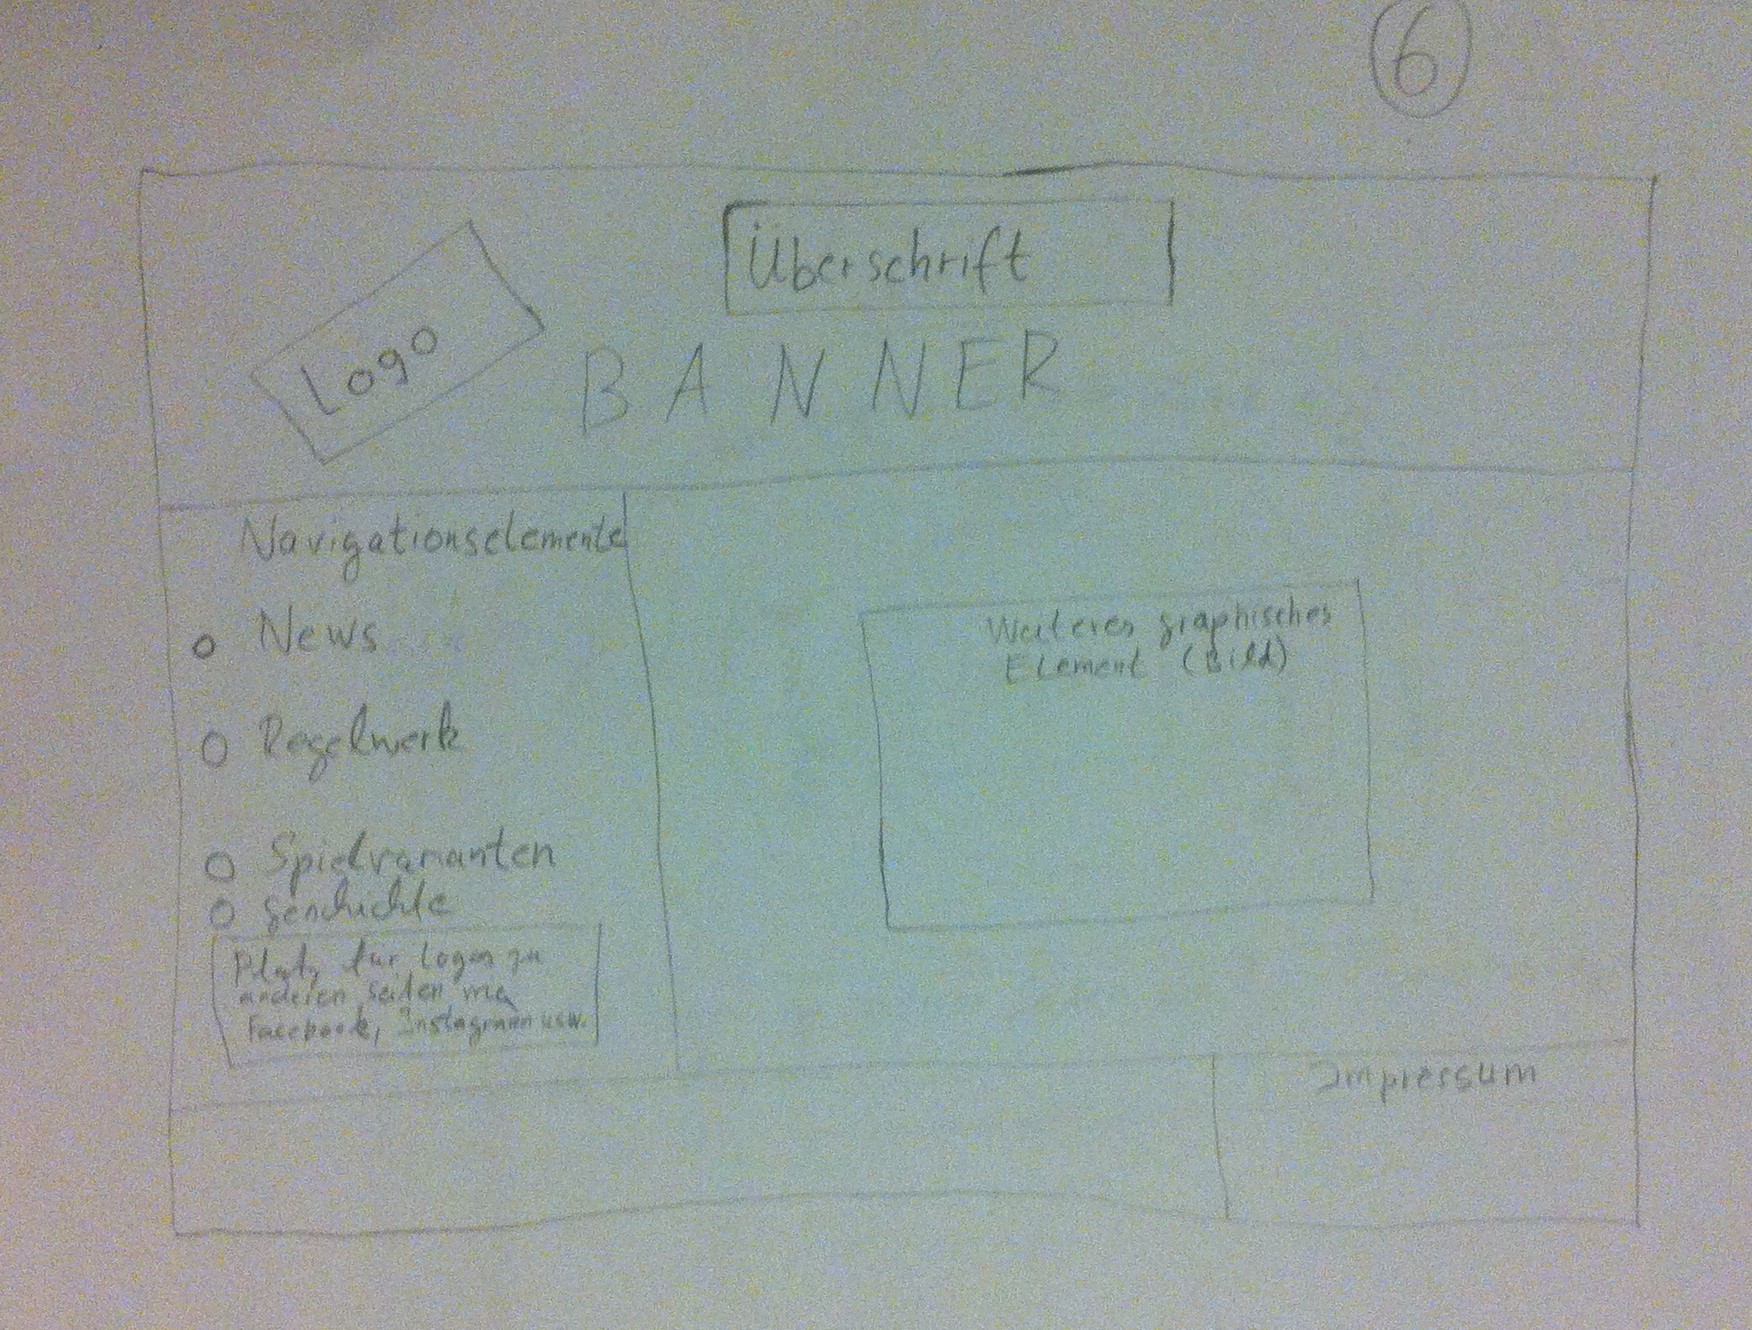 6
Überschrift
Logo
BANNER
Navigationselemente
News
Regelwerk
Spielvarianten
Geschichte
Platz für Logos zu
anderen Seiten wie
Facebook, Instagramm usw.
Weiteres graphisches
Element (Bild)
Impressum